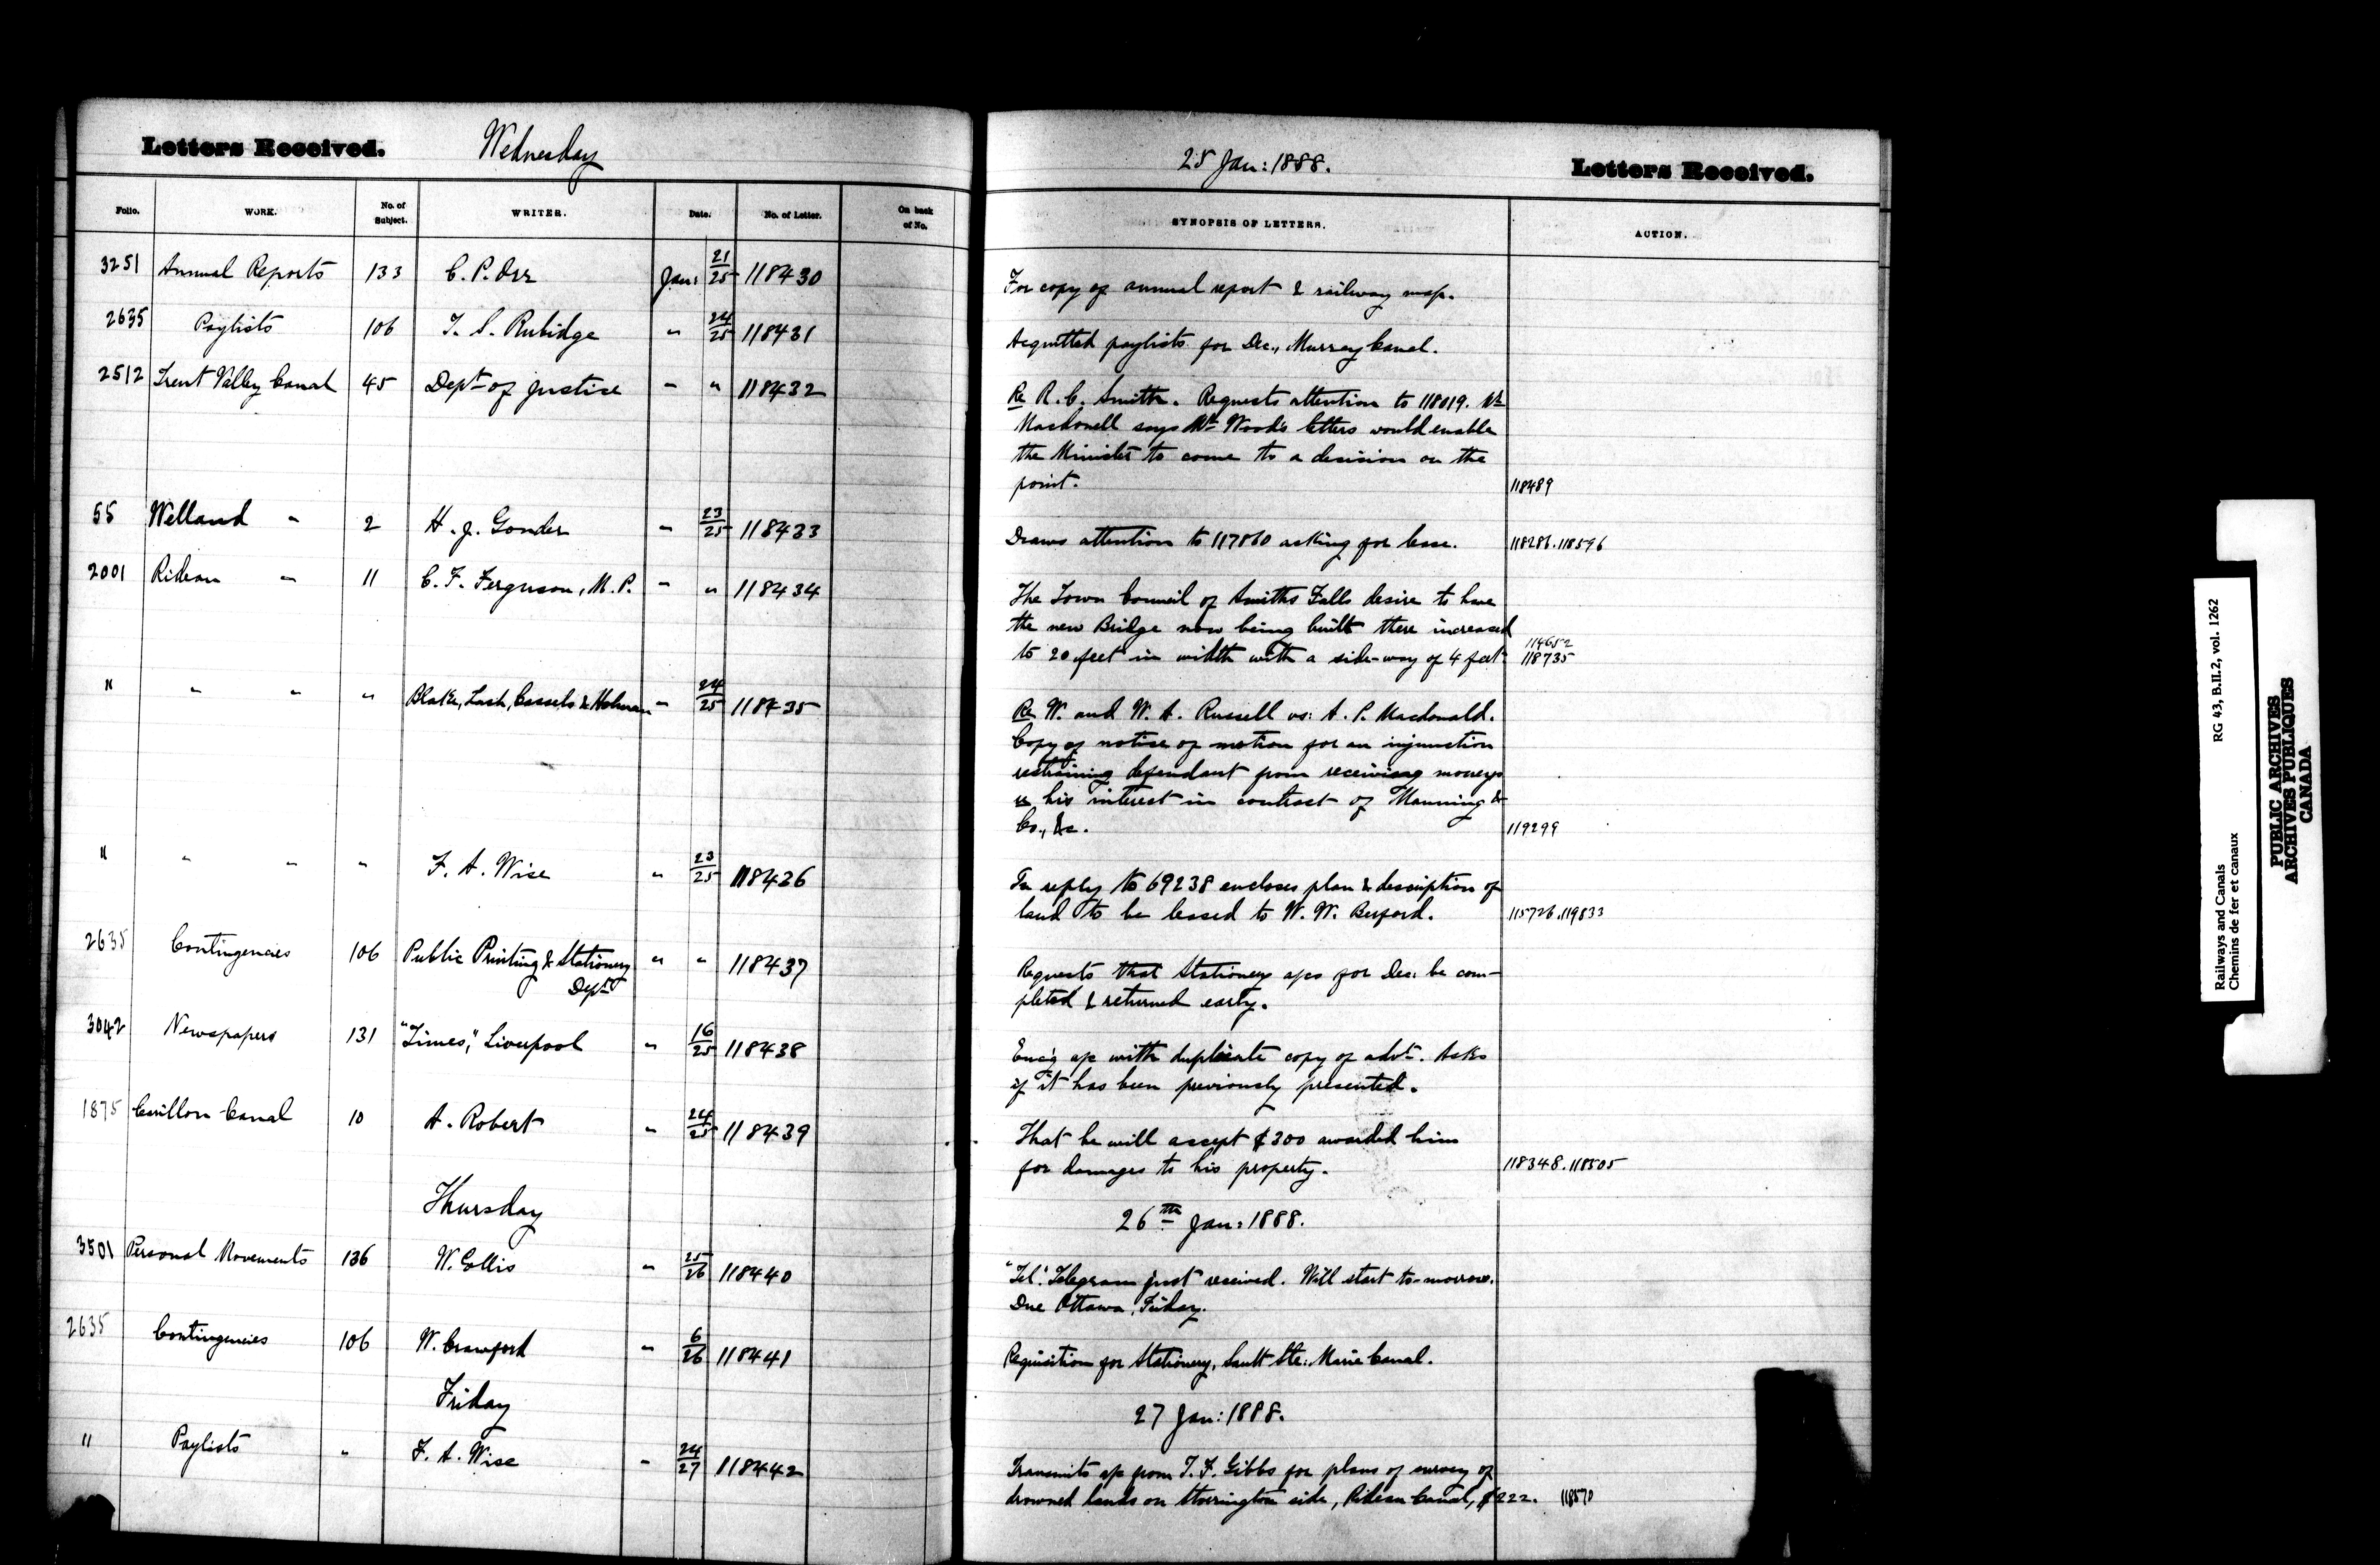 Letters Received. Wednesday
25 Jan: 1888. Letters Received.
Folio. WORK. No. of Subject. WRITER. Date. No. of Letter. On back of No. SYNOPSIS OF LETTERS. ACTION.
3251 Annual Reports 133 C. P. Orr Jan: 21/25 118430
For copy of annual report & railway map.
2635 Paylists 106 T. S. Rubidge " 24/25 118431
Acquitted paylists for Dec., Murray Canal.
2512 Trent Valley Canal 45 Dept of Justice " " 118432
Re R. C. Smith. Requests attention to 118019. Mr
Macdonell says Mr Wood's letters would enable
the Minister to come to a decision on the
point. 118489
55 Welland " 2 H. J. Gonder " 23/25 118433
Draws attention to 117860 asking for lease. 118286.118596
2001 Rideau " 11 C. F. Ferguson, M. P. " " 118434
The Town Council of Smiths Falls desire to have
the new Bridge now being built there increased
to 20 feet in width with a side-way of 4 feet. 114652
118735
" " " " Blake, Lash, Cassels & Holman " 24/25 118435
Re W. and W. A. Russell vs: A. P. Macdonald.
Copy of notice of motion for an injunction
restraining defendant from receiving moneys
re his interest in contract of Manning &
Co., &c. 119299
" " " " F. A. Wise " 23/25 118436
In reply to 69238 encloses plan & description of
land to be leased to W. W. Berford. 115726.119833
2635 Contingencies 106 Public Printing & Stationery " " 118437
Dept
Requests that Stationery a/cs for Dec: be com-
pleted & returned early.
3042 Newspapers 131 "Times," Liverpool " 16/25 118438
Enc'g a/c with duplicate copy of advt. Asks
if it has been previously presented.
1875 Carillon Canal 10 A. Robert " 24/25 118439
That he will accept $300 awarded him
for damages to his property. 118348.118505
Thursday
26th Jan: 1888.
3501 Personal Movements 136 W. Ellis " 25/26 118440
"Tel." Telegram just received. Will start to-morrow.
Due Ottawa, Friday.
2635 Contingencies 106 W. Crawford " 6/26 118441
Requisition for Stationery, Sault Ste: Marie Canal.
Friday
27 Jan: 1888.
" Paylists " F. A. Wise " 24/27 118442
Transmits a/c from T. F. Gibbs for plans of survey of
drowned lands on Storrington side, Rideau Canal, $222. 118570
Railways and Canals RG 43, B.II.2, vol. 1262
Chemins de fer et canaux
PUBLIC ARCHIVES
ARCHIVES PUBLIQUES
CANADA